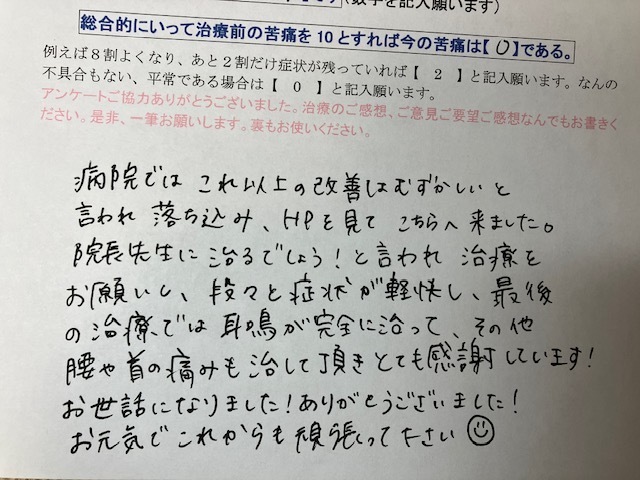 (数字を記入願います)
総合的にいって治療前の苦痛を10とすれば今の苦痛は【 0 】である。
例えば8割よくなり、あと2割だけ症状が残っていれば【 2 】と記入願います。なんの
不具合もない、平常である場合は【 0 】と記入願います。
アンケートご協力ありがとうございました。治療のご感想、ご意見ご要望ご感想なんでもお書きく
ださい。是非、一筆お願いします。裏もお使いください。
病院では これ以上の改善はむずかしいと
言われ 落ち込み、HPを見て こちらへ 来ました。
院長先生に 治るでしょう!と言われ 治療を
お願いし、段々と症状が軽快し、最後
の治療では 耳鳴が完全に治って、その他
腰や首の痛みも治して頂きとても感謝しています!
お世話になりました!ありがとうございました!
お元気でこれからも頑張って下さい☺